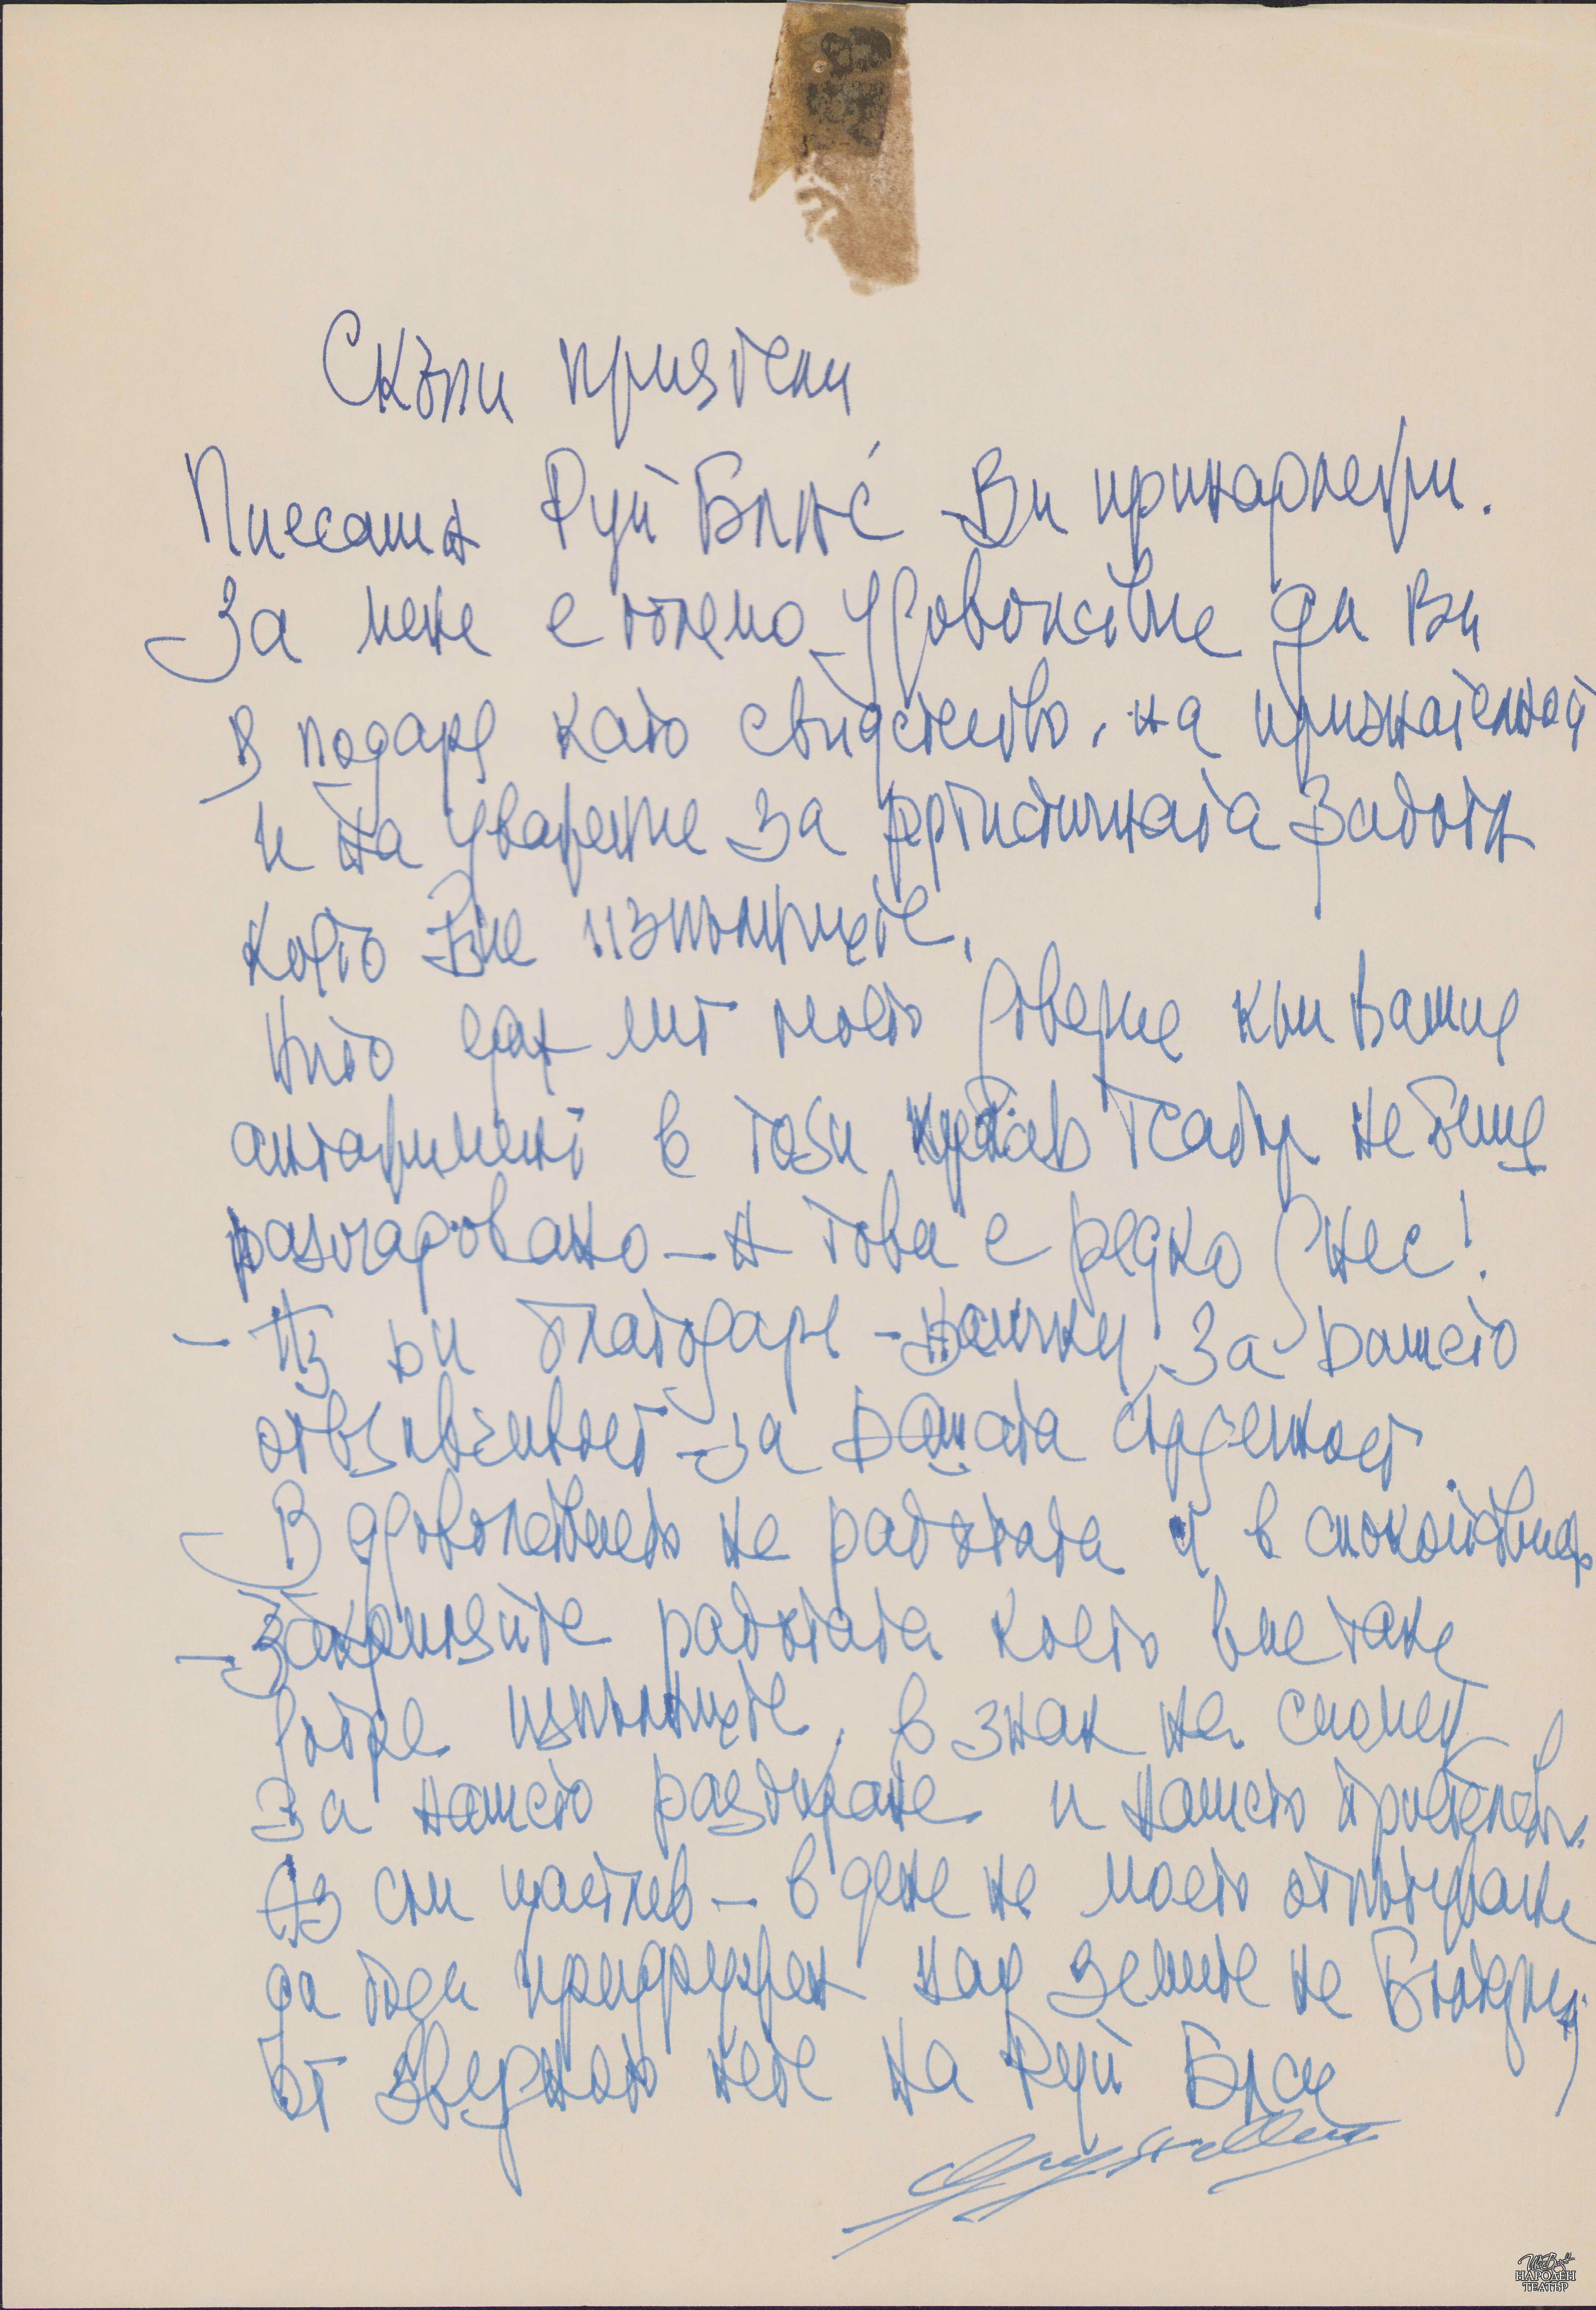 Скъпи приятели
Пиесата Руй Блас Ви принадлежи.
За мене е големо удоволствие да ви
я подаря като свидетелство, на признателност
и на уважение за артистичната работа
която вие изпълнихте.
Нито един миг моето доверие към вашия
ангажимент в този куклен театър не беше
разочаровано — А това е рядко днес!
— Аз ви благодаря – всички за вашето
отзивчивост – за вашата сърдечност.
— В удоволствието на работата и в спокойствието
— Запомняйте работата която вие така
добре изпълнихте, в знак на спомен
За нашето разбиране и нашето приятелство.
Аз съм щастлив — в деня на моето отпътуване
да бъда придружен над земите на България
от звездното небе на Руй Блас
НАРОДЕН
ТЕАТЪР